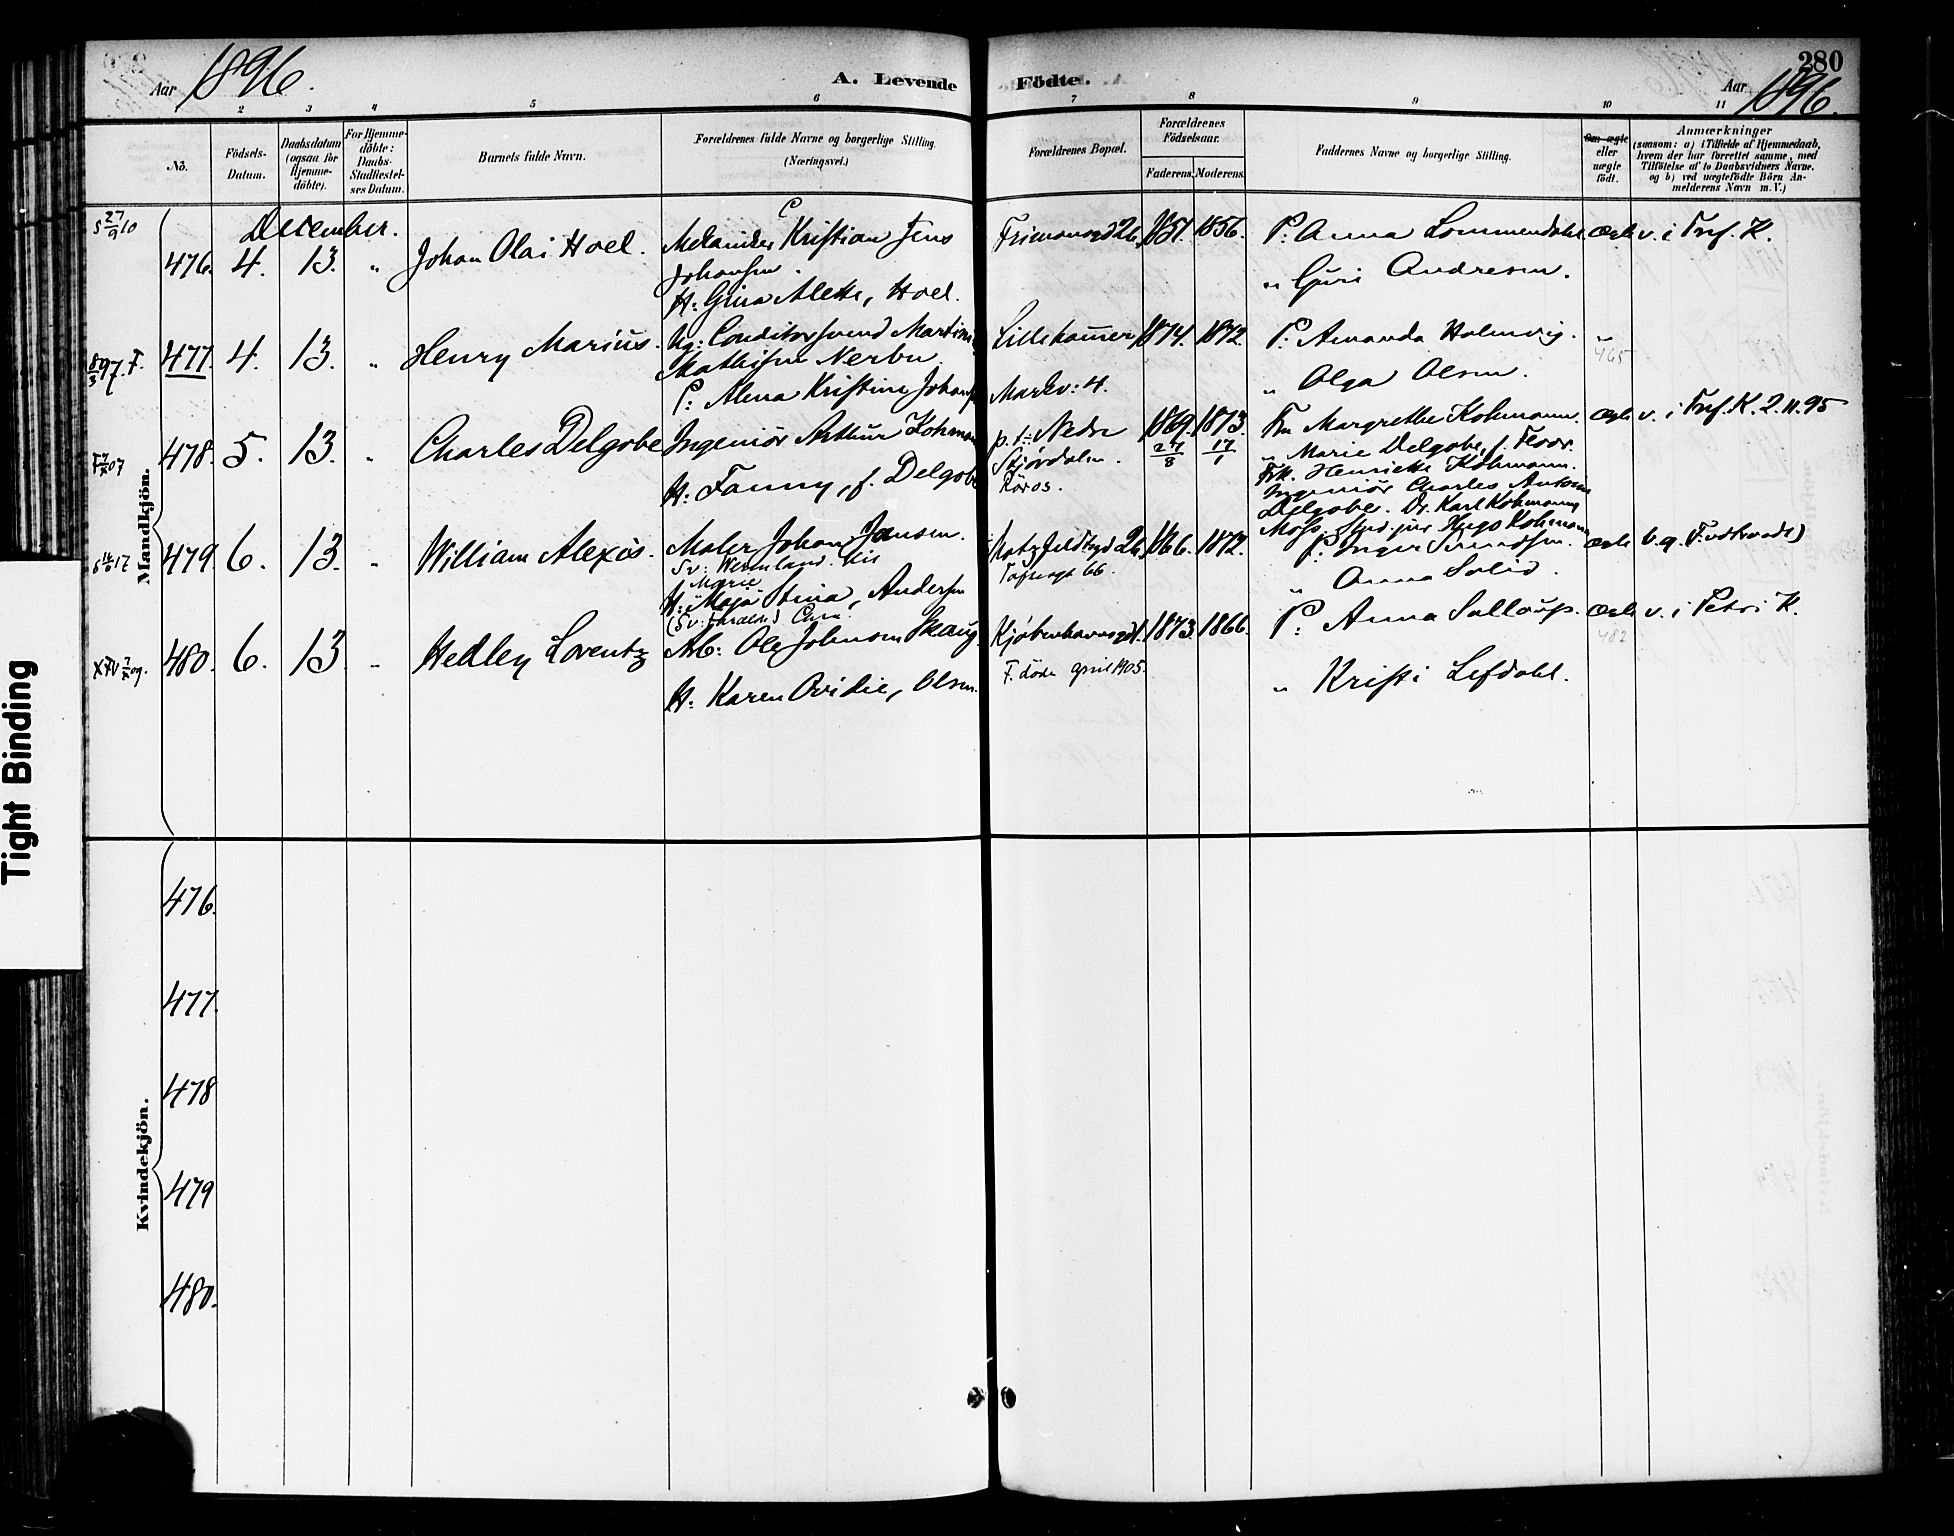 280
Aar 1896.
A. Levende
Födte.
Aar 1896.
1 2 3 4 5 6 7 8 9 10 11
No.
Födsels-
Datum.
Daabsdatum
(ogsaa for
Hjemme-
döbte).
For Hjemme-
döbte:
Daabs-
Stadfæstel-
ses Datum.
Barnets fulde Navn.
Forældrenes fulde Navne og borgerlige Stilling.
(Næringsvei.)
Forældrenes Bopæl.
Forældrenes
Födselsaar.
Faderens. Moderens.
Faddernes Navne og borgerlige Stilling.
Om ægte
eller
uægte
födt.
Anmærkninger
(saasom: a) i Tilfælde af Hjemmedaab,
hvem der har forrettet samme, med
Tilföielse af to Daabsvidners Navne.
og b) ved uægtefödte Börn An-
melderens Navn m. V.)
Mandkjön.
December.
476. 4. 13. " Johan Olai Hoel.
Kristian Jens
Johansen.
H: Gina Alette, Hoel.
1851. 1856.
P: Anna Lommendahl
" Guri Andresen.
ægte v. i Tref. K.
477. 4. 13. " Henry Marius.
Ug: Conditorsvend Martin
Mathisen Nerbu.
P: Alena Kristine
Lillehammer
Markv: 4.
1874. 1872.
P: Amanda Holmvig.
" Olga Olsen.
"
465
478. 5. 13. " Charles Delgobe
Ingeniör Arthur
H: Fanny, f. Delgobe
p. t. Nedre
Stjördalen.
Röros.
1869. 1873.
27/8 17/1
Fru Margrethe Kohmann.
" Marie Delgobe, f.
Frk. Henriette Kohmann.
Ingeniör Charles Antoine
Delgobe. Dr. Karl Kohmann,
Moss. Stud. jur Hugo Kohmann
ægte v. i Tref. K. 2.11.95
479. 6. 13. " William Alexius.
Maler Johan Jansen.
Sv: Wermland.
Marie
H: Maja Stina, Andersen
1866. 1872.
P: Inger
" Anna Solid.
ægte b. g.
480. 6. 13. " Hedley Lorentz
Arb: Ole Johnsen Skaug
H: Karen Ovidie, Olsen.
Kjöbenhavnsgd
F. döde april 1905.
1873. 1866.
P: Anna
" Kristi Lefdahl.
ægte v. i Petri K.
482
Kvindekjön.
476.
477.
478
479
480.
Tight Binding